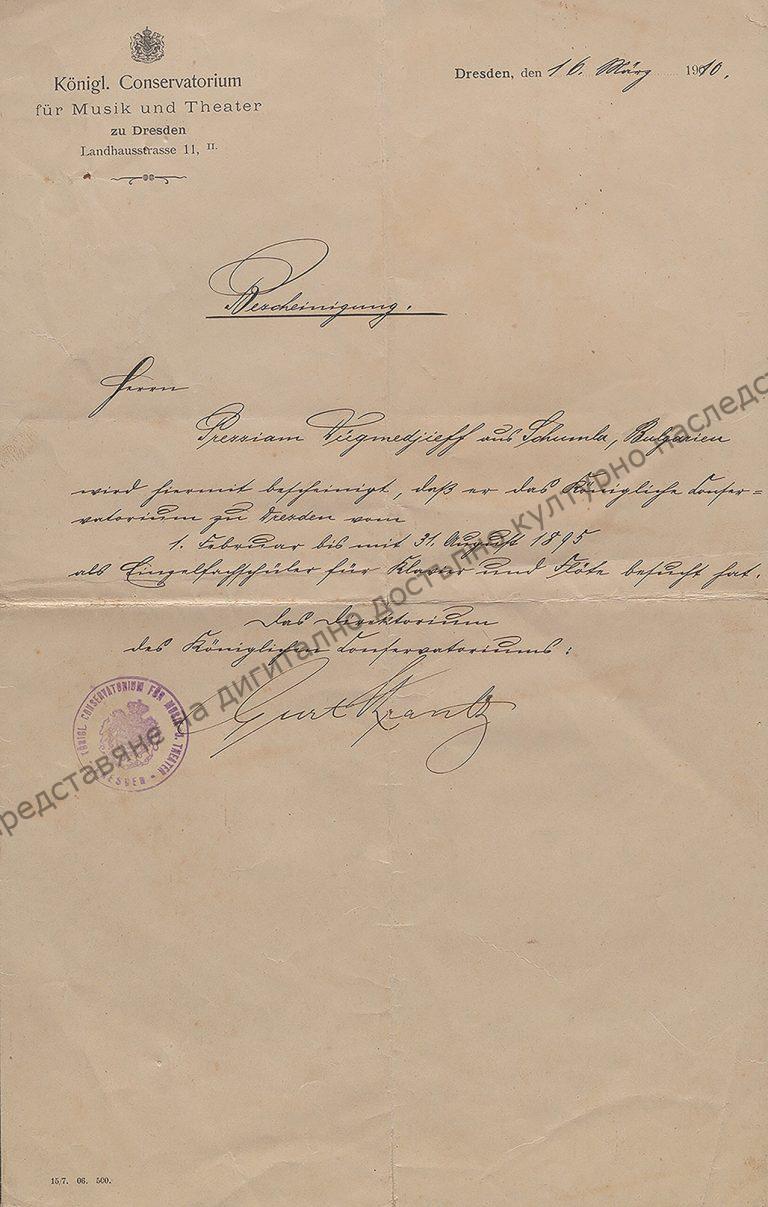 Königl. Conservatorium
für Musik und Theater
zu Dresden
Landhausstrasse 11, II.
Dresden, den 16. März 1910.
Bescheinigung.
Herrn
Presiam Dügmedjieff aus Schumla, Bulgarien
wird hiermit bescheinigt, daß er das Königliche Conser=
vatorium zu Dresden vom
1. Februar bis mit 31. August 1895
als Einzelfachschüler für Klavier und Flöte besucht hat.
Das Direktorium
des Königlichen Conservatoriums:
Curt Krantz
KÖNIGL. CONSERVATORIUM FÜR MUSIK U. THEATER
DRESDEN
редставяне на дигитално достъпно културно наследст
15/7. 06. 500.